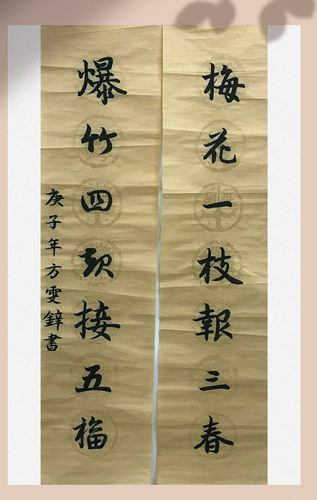 梅花一枝報三春
爆竹四起接五福
庚子年方雯鋅書